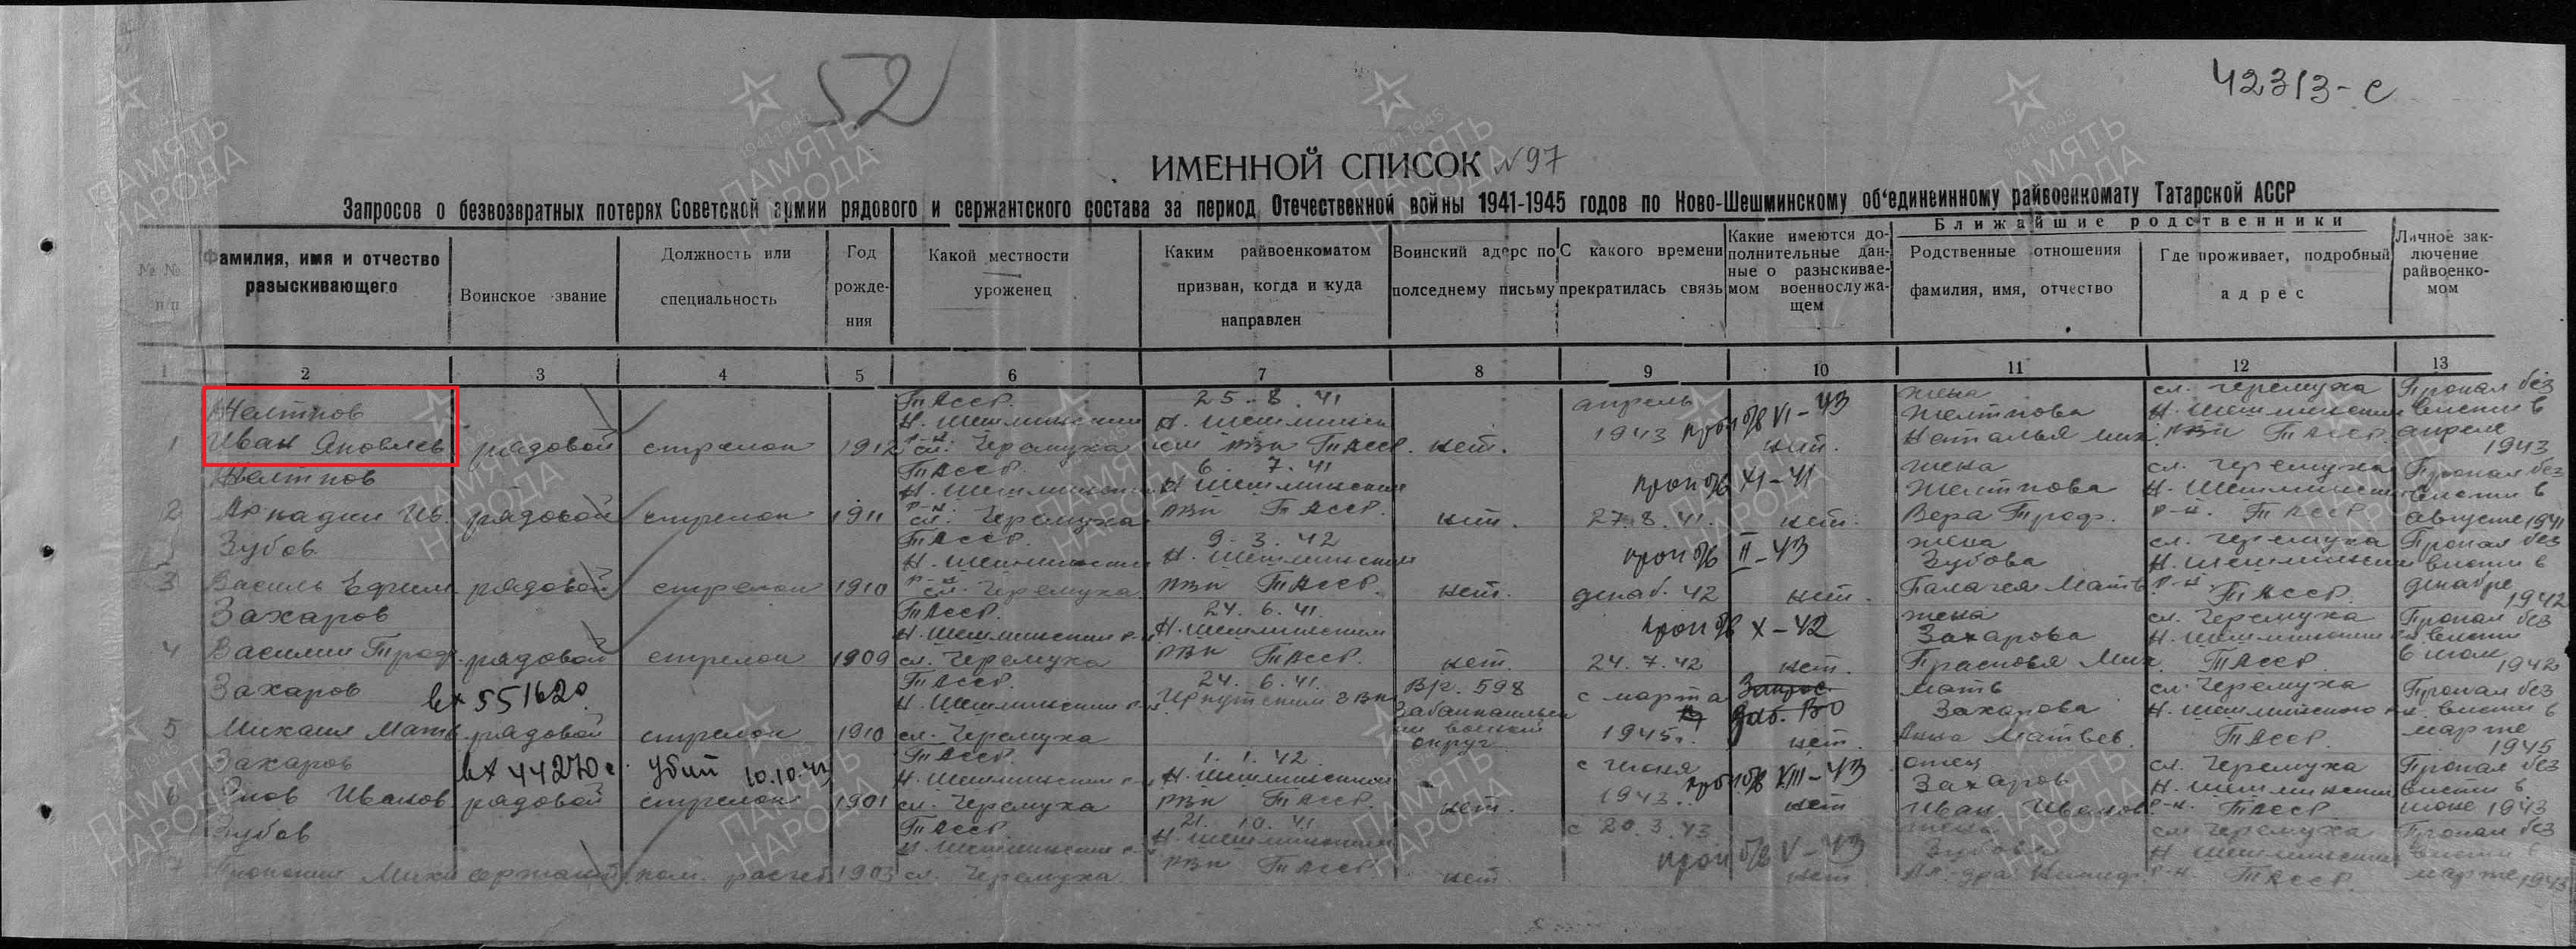 52
42313-с
ИМЕННОЙ СПИСОК №97
Запросов о безвозвратных потерях Советской армии рядового и сержантского состава за период Отечественной войны 1941-1945 годов по Ново-Шешминскому об'единеинному райвоенкомату Татарской АССР
№ № п/п
Фамилия, имя и отчество разыскивающего
Воинское звание
Должность или специальность
Год рожде- ния
Какой местности уроженец
Каким райвоенкоматом призван, когда и куда направлен
Воинский адерс по полседнему письму
С какого времени прекратилась связь
Какие имеются до- полнительные дан- ные о разыскивае- мом военнослужа- щем
Ближайшие родственники
Родственные отношения фамилия, имя, отчество
Где проживает, подробный адрес
Личное зак- лючение райвоенко- мом
1 2 3 4 5 6 7 8 9 10 11 12 13
1 Желтков Иван Яковлев рядовой стрелок 1912 ТАССР Н. Шешминский р-н сл. Черемуха 25.8.41 Н. Шешминским РВК ТАССР нет. апрель 1943 проп б/в VI-43 нет. жена Желткова Наталья Мих сл. Черемуха Н. Шешминский ТАССР Пропал без вести в апреле 1943
2 Желтков Аркадий Ив. рядовой стрелок 1911 ТАССР Н. Шешминский р-н сл. Черемуха 6.7.41 Н Шешминским РВК ТАССР. нет. 27.8.41. проп б/в XI-41 нет. жена Желткова Вера Троф. сл. Черемуха Н. Шешминский р-н. ТАССР Пропал без вести в августе 1941
3 Зубов Василь Ефим рядовой стрелок 1910 ТАССР. Н. Шешминский р-н сл. Черемуха. 9.3.42 Н. Шешминским РВК ТАССР. нет. декаб. 42 проп б/в II-43 нет. жена Зубова Палагея Матв сл. Черемуха Н. Шешминский р-н. ТАССР. Пропал без вести в декабре 1942
4 Захаров Василий Троф. рядовой стрелок 1909 ТАССР. Н. Шешминский р-н сл. Черемуха 24.6.41. Н. Шешминским РВК ТАССР. нет. 24.7.42 проп б/в X-42 нет. жена Захарова Прасковья Мих сл. Черемуха Н. Шешминский ТАССР. Пропал без вести в июле 1942
5 Захаров Михаил Матв. вх 55162с. рядовой стрелок 1910 ТАССР. Н. Шешминский р-н сл. Черемуха 24.6.41. Иркутским ГВК В/ч. 598 Забайкальский военный округ с марта 1945 г. Запрос Заб. ВО нет. мать Захарова Анна Матвев. сл. Черемуха Н. Шешминского р-н. ТАССР. Пропал без вести в марте 1945
6 Захаров Яков Иванов. вх 44270с. убит 10.10.43 рядовой стрелок 1901 ТАССР. Н. Шешминский р-н сл. Черемуха 1.1.42. Н. Шешминским РВК ТАССР. нет. с июня 1943. проп. б/в VIII-43 нет отец Захаров Иван Иванов. сл. Черемуха Н. Шешминский р-н. ТАССР Пропал без вести в июне 1943
7 Зубов Мих сержант пом. 1903 ТАССР. Н. Шешминский р-н сл. Черемуха. 21.10.41 Н. Шешминским РВК ТАССР. нет с 20.3.43 проп б/в V-43 нет жена Зубова сл. Черемуха Н Шешминский р-н ТАССР. Пропал без вести в марте 1943
ПАМЯТЬ НАРОДА 1941-1945